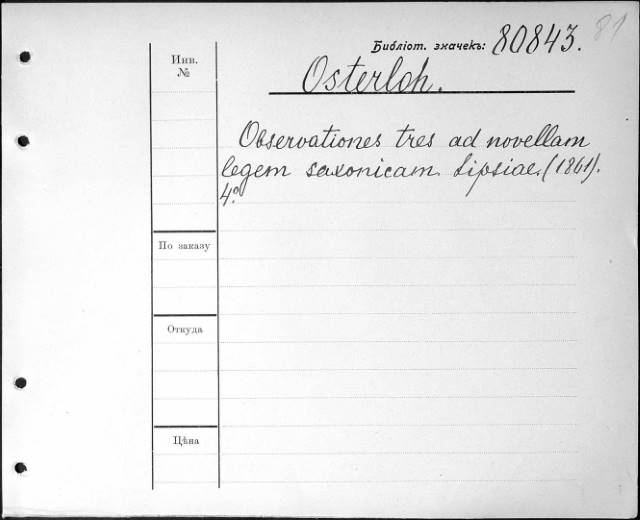 81
Библіот. значекъ: 80843.
Инв.
№
Osterloh.
Observationes tres ad novellam
legem saxonicam. Lipsiae. (1861).
4º
По заказу
Откуда
Цѣна